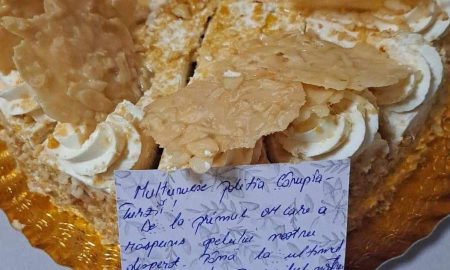 Mulțumesc poliția Câmpia-
Turzii!
De la primul om care a
răspuns apelului nostru
disperat până la ultimul